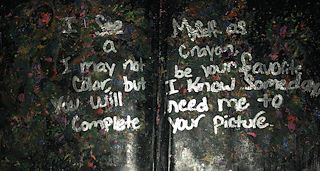 I See Myself as
a Crayon,
I may not be your favorite
Color, but I Know Someday
you will need me to
Complete your picture.